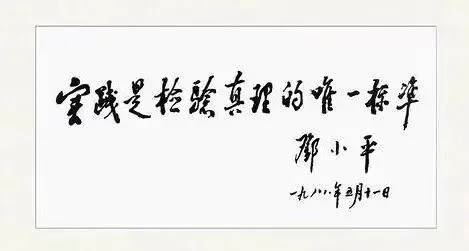 实践是检验真理的唯一标准
鄧小平
一九八八年五月十一日